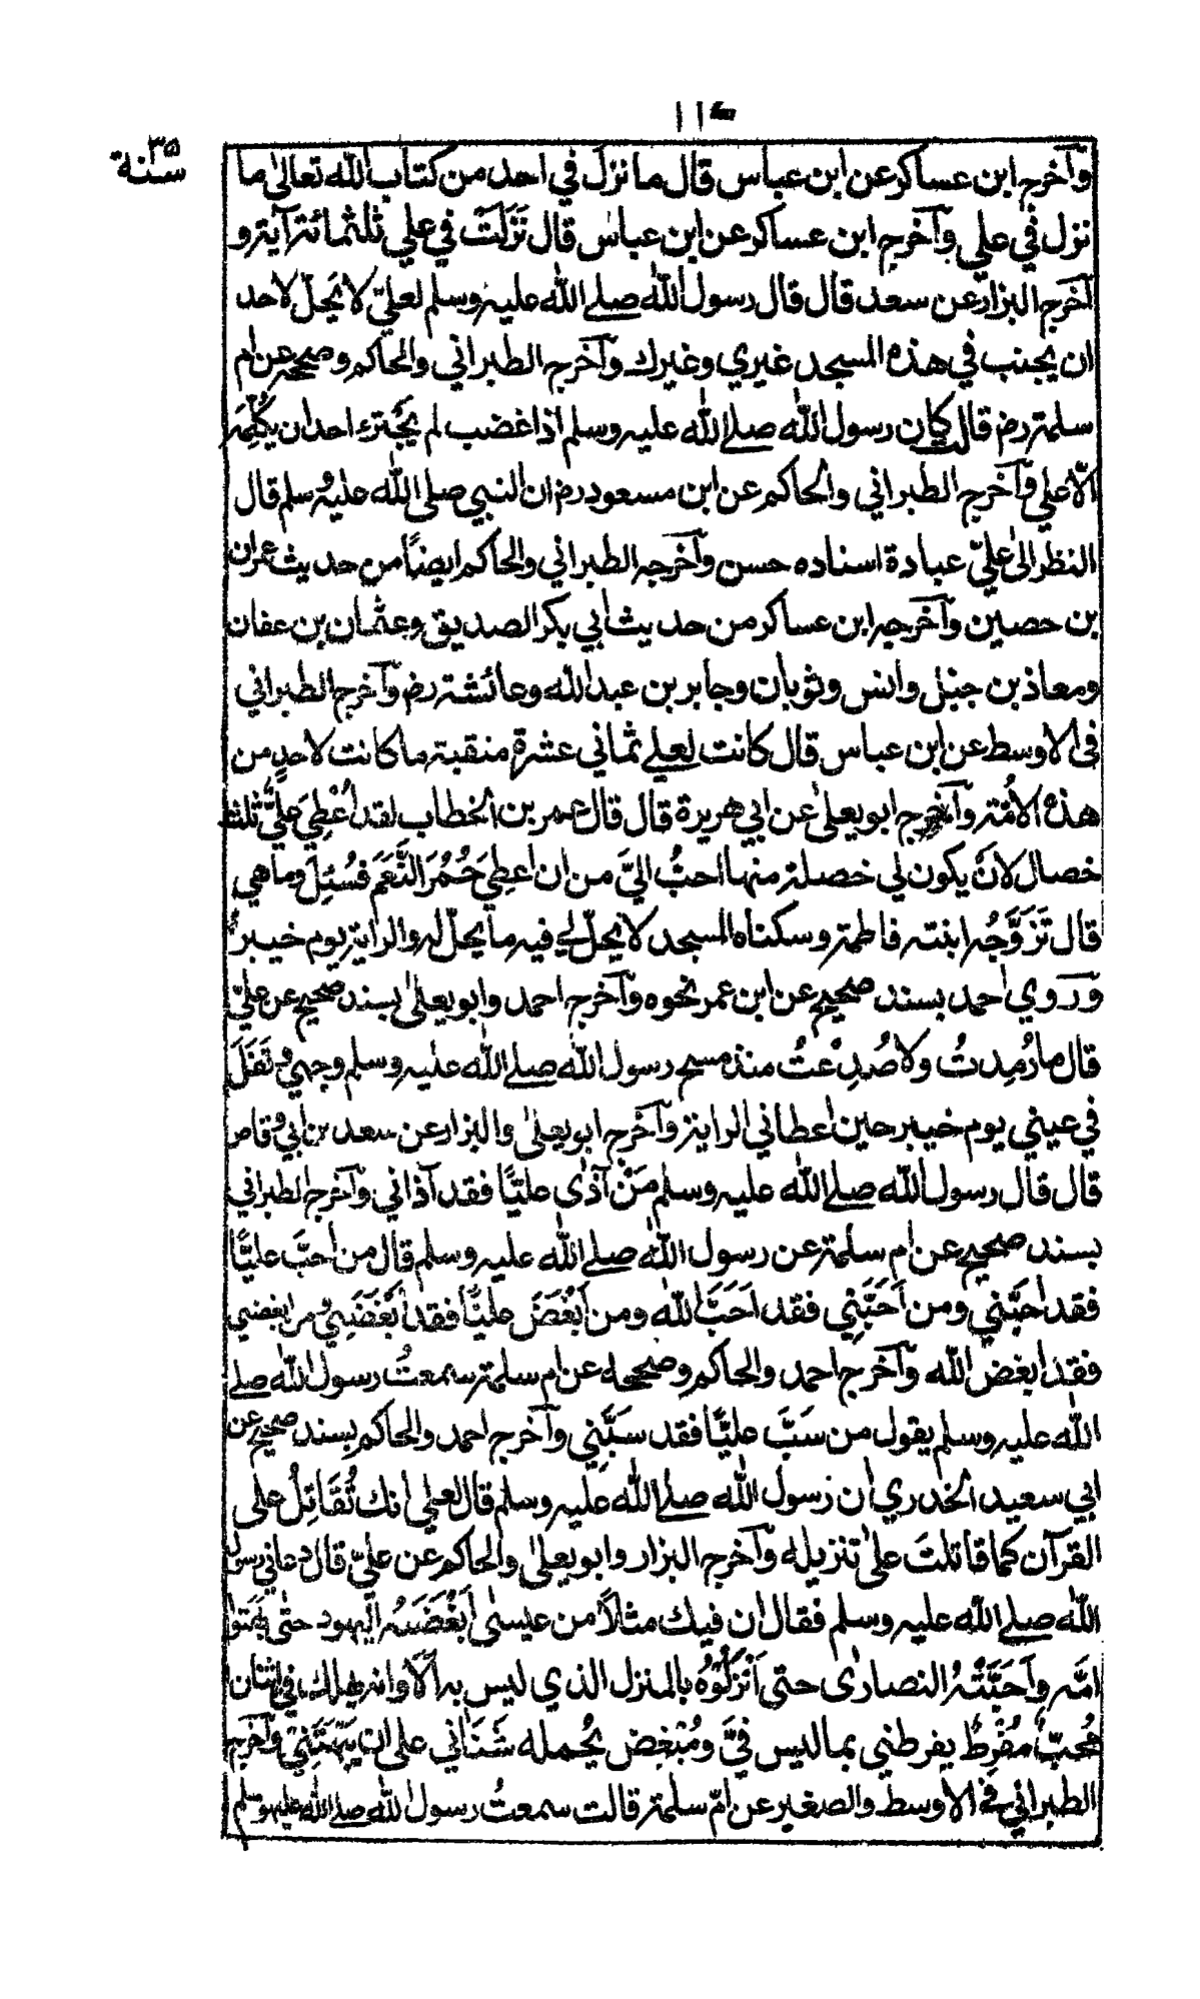 سنة ٣٥
وآخرج ابن عساكر عن ابن عباس قال ما نزل في احد من كتاب الله تعالى ما
نزل في علي وآخرج ابن عساكر عن ابن عباس قال نَزَلَتْ في علي ثلثمائة آية و
آخرج البزار عن سعد قال قال رسول الله صلى الله عليه وسلم لعليّ لا يحلّ لاحد
ان يجنب في هذه المسجد غيري وغيرك وآخرج الطبراني والحاكم وصححه عن ام
سلمة رض قالت كان رسول الله صلى الله عليه وسلم اذا غضب لم يَجْترء احد ان يكلّمَه
الّا علي وآخرج الطبراني والحاكم عن ابن مسعود رض ان النبي صلى الله عليه وسلم قال
النظر الى عليّ عبادة اسناده حسن وآخرجه الطبراني والحاكم ايضًا من حديث عمران
بن حصين وآخرجه ابن عساكر من حديث ابي بكر الصديق وعثمان بن عفان
ومعاذ بن جبل وانس وثوبان وجابر بن عبد الله وعائشة رض وآخرج الطبراني
فى الاوسط عن ابن عباس قال كانت لعلي ثماني عشرة منقبة ما كانت لاحدٍ من
هذه الامّة وآخرج ابو يعلى عن ابي هريرة قال قال عمر بن الخطاب لقد اُعْطِيَ عليٌّ ثلث
خصال لانْ يكون لي خصلة منها احبُّ اليَّ من ان اعطِيَ حُمُرَ النَّعَمِ فسُئِلَ وما هي
قال تَزَوَّجُه ابنته فاطمة وسكناه المسجد لا يحلّ لي فيه ما يحلّ له والراية يوم خيبر
وروي احمد بسند صحيح عن ابن عمر نحوه وآخرج احمد وابو يعلى بسند صحيح عن عليّ
قال ما رُمِدتُ ولا صُدِعْتُ منذ مسح رسول الله صلى الله عليه وسلم وجهي وتَفَلَ
في عيني يوم خيبر حين اعطاني الراية وآخرج ابو يعلى والبزار عن سعد بن ابي وقاص
قال قال رسول الله صلى الله عليه وسلم مَنْ آذى عليًّا فقد آذاني وآخرج الطبراني
بسند صحيح عن ام سلمة عن رسول الله صلى الله عليه وسلم قال من احبّ عليًّا
فقد احبّني ومن اَحَبَّنِي فقد اَحَبَّ الله ومن اَبْغَضَ عليًّا فقد اَبْغَضَنِي ومن ابغضني
فقد ابغض الله وآخرج احمد والحاكم وصححه عن ام سلمة سمعتُ رسول الله صلى
الله عليه وسلم يقول من سَبَّ عليًّا فقد سَبَّنِي وآخرج احمد والحاكم بسند صحيح عن
ابي سعيد الخدري ان رسول الله صلى الله عليه وسلم قال لعلي انك تُقَاتِلُ على
القرآن كما قاتلتَ على تنزيله وآخرج البزار وابو يعلى والحاكم عن عليّ قال دعاني رسول
الله صلى الله عليه وسلم فقال ان فيك مثلاً من عيسى اَبْغَضَتْهُ اليهود حتى بَهَتوا
امّه واَحَبَّتْهُ النصارى حتى اَنْزَلُوْهُ بالمنزل الذي ليس به اَلَا وانه يهلك في اثنان
مُحِبٌّ مُفْرِطٌ يفرطني بما ليس فيَّ ومُبْغِضٌ يُحمله شَنَاٰني على ان يَبْهَتَنِيْ وآخرج
الطبراني في الاوسط والصغير عن امّ سلمة قالت سمعتُ رسول الله صلى الله عليه وسلم